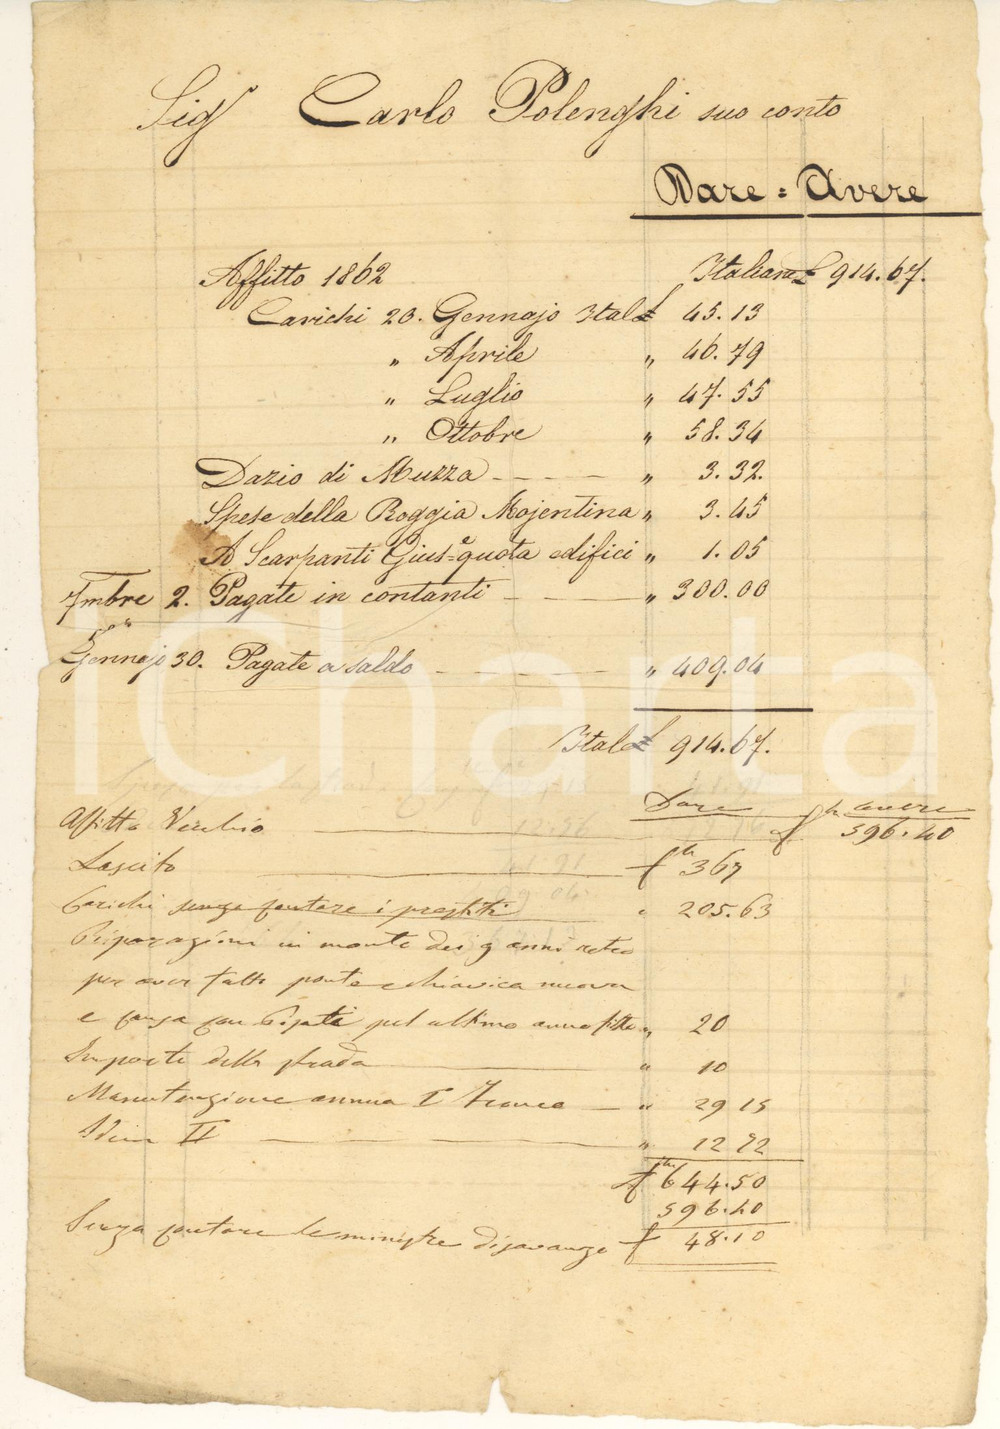 Sig.r Carlo Polenghi suo conto
Dare = Avere
Affitto 1862 Italiane £ 914.67.
Carichi 20. Gennajo Ital £ 45.13
" Aprile " 46.79
" Luglio " 47.55
" Ottobre " 58.34
Dazio di Muzza " 3.32.
Spese della Roggia Mojentina " 3.45
A Scarpanti Gius.e quota edifici " 1.05
7mbre 2. Pagate in contanti " 300.00
Gennajo 30. Pagate a saldo " 409.04
Ital £ 914.67.
iCharta
Dare avere
Affitto Vecchio £ 596.40
Lascito £ 367
Carichi senza contare i prestiti " 205.63
Riparazioni in monte dei 9 anni retro
per aver fatto ponte e chiavica nuova
e per l'ultimo anno fitto " 20
Importo della strada " 10
Manutenzione annua I " 29 15
Idem II " 12 72
£ 644.50
596.40
Senza contare le minestre disavanzo £ 48.10